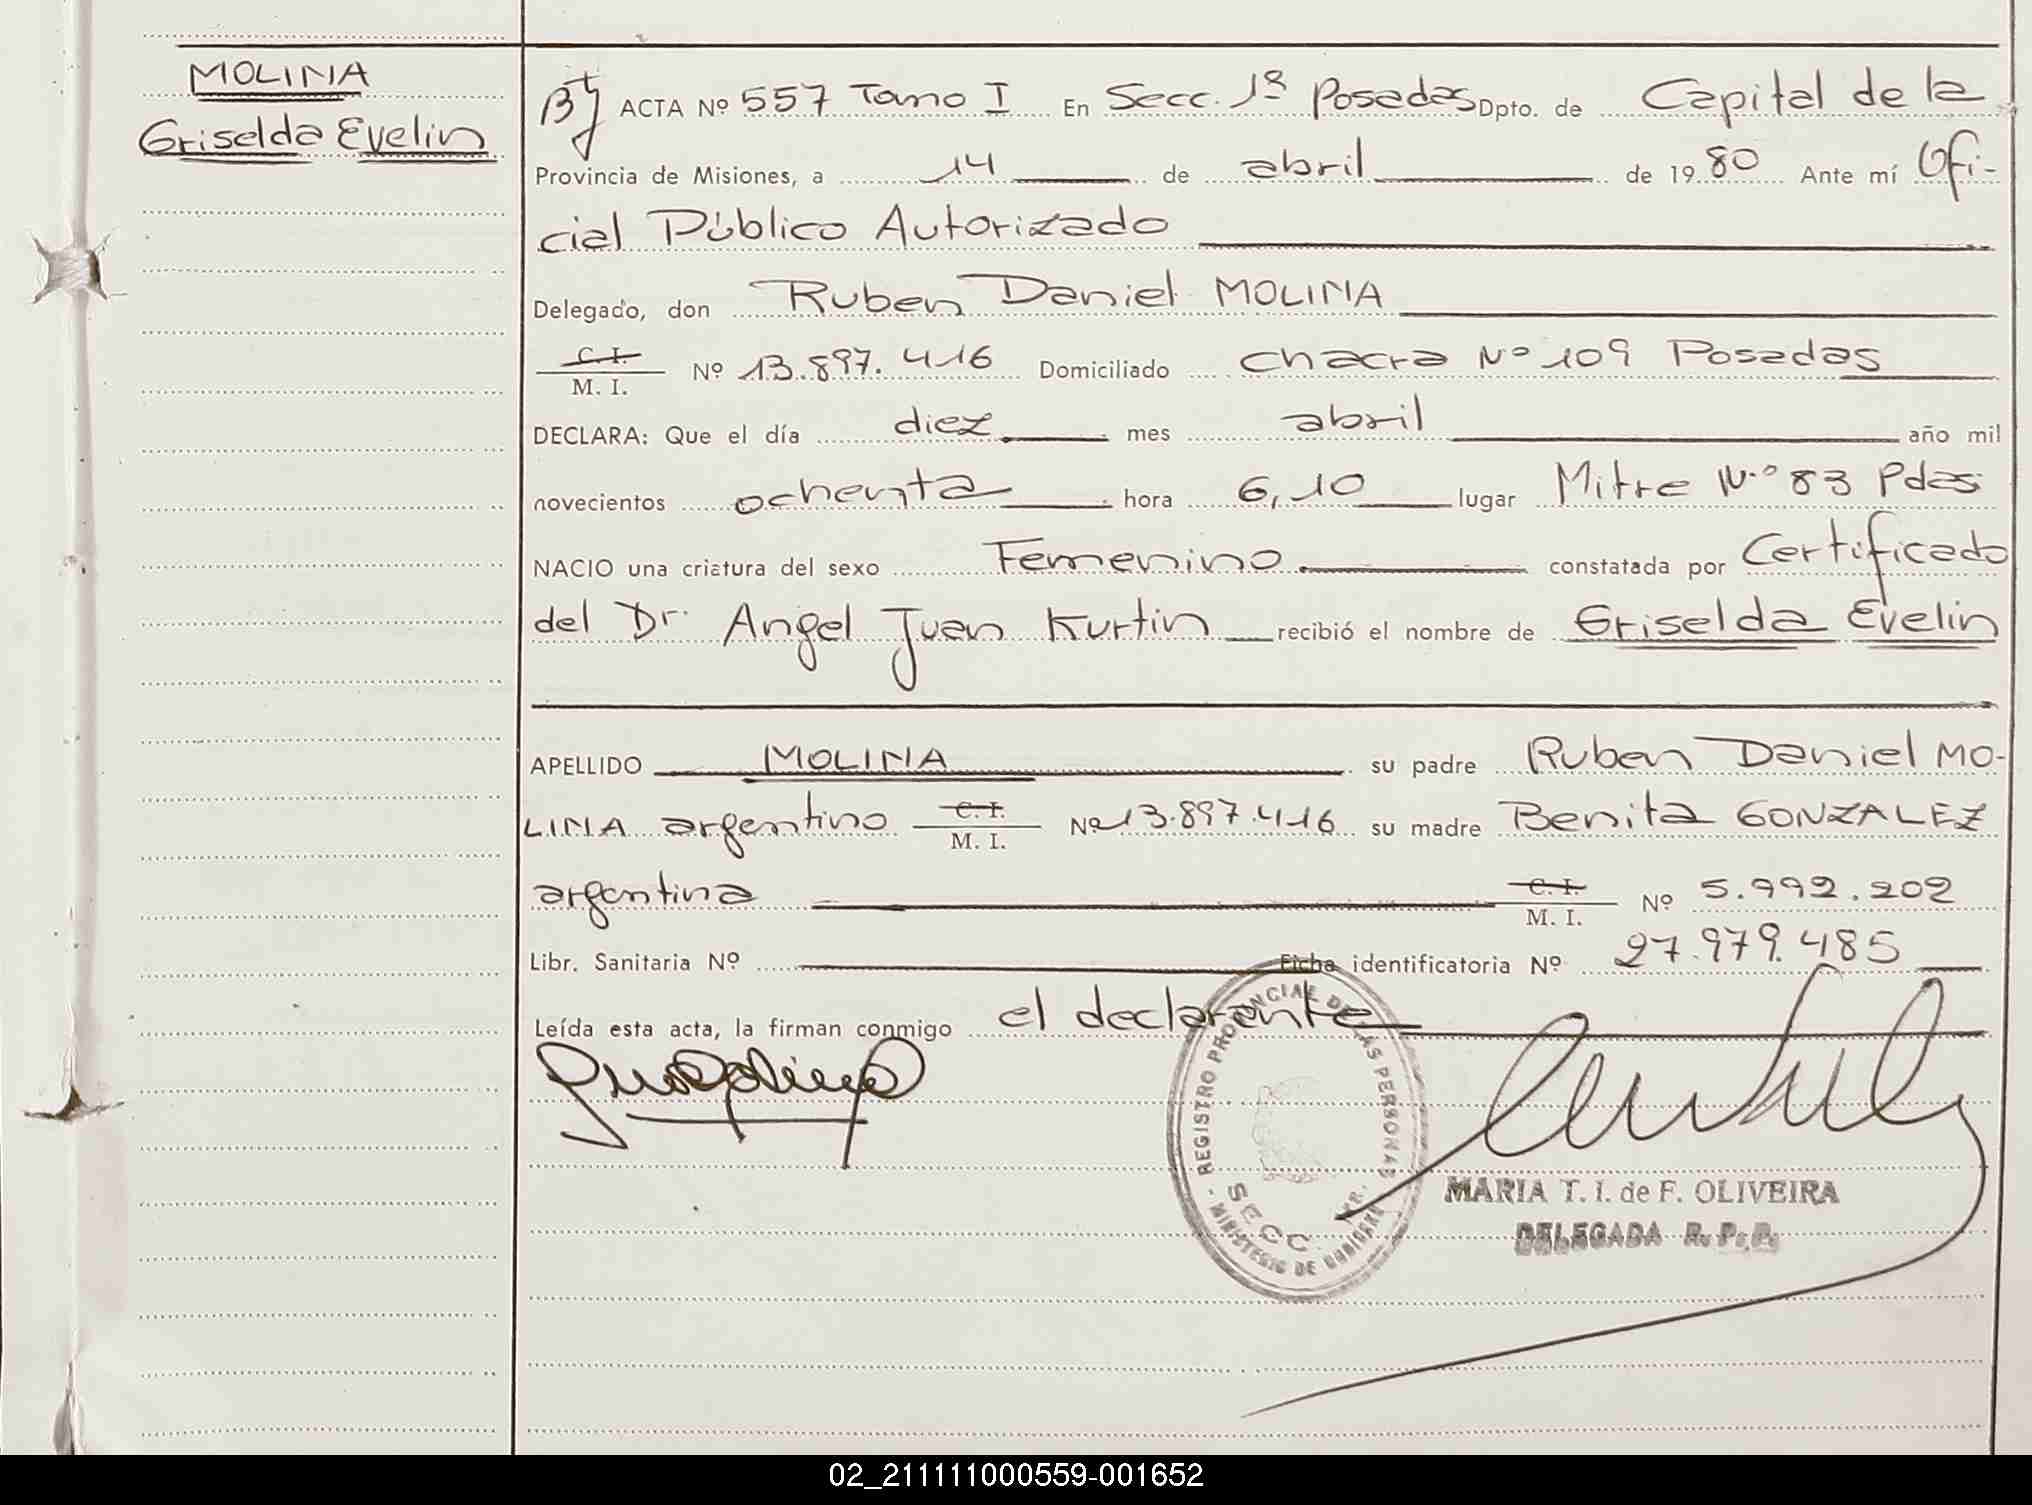 MOLINA
Griselda Evelin
ACTA Nº 557 Tomo I En Secc. 1ª Posadas Dpto. de Capital de la
Provincia de Misiones, a 14 de abril de 1980 Ante mí Ofi-
cial Público Autorizado
Delegado, don Ruben Daniel MOLINA
C. I.
M. I. Nº 13.897.416 Domiciliado chacra Nº 109 Posadas
DECLARA: Que el día diez mes abril año mil
novecientos ochenta hora 6,10 lugar Mitre N.º 83 Pdas
NACIO una criatura del sexo Femenino constatada por Certificado
del Dr. Angel Juan Kurtin recibió el nombre de Griselda Evelin
APELLIDO MOLINA su padre Ruben Daniel MO-
LINA argentino C. I. M. I. Nº 13.897.416 su madre Benita GONZALEZ
argentina C. I. M. I. Nº 5.992.202
Libr. Sanitaria Nº Ficha identificatoria Nº 27.979.485
Leída esta acta, la firman conmigo el declarante
REGISTRO PROVINCIAL DE LAS PERSONAS
SECC.
MINISTERIO DE
MARIA T. I. de F. OLIVEIRA
DELEGADA R. P. P.
02_211111000559-001652